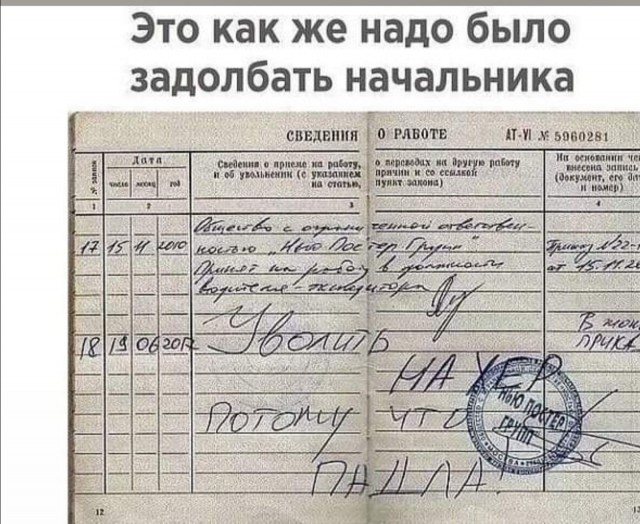 Это как же надо было
задолбать начальника
СВЕДЕНИЯ О РАБОТЕ
АТ-VI № 5960281
№ записи
Дата
число месяц год
Сведения о приеме на работу, о переводах на другую работу
и об увольнении (с указанием причин и со ссылкой
на статью, пункт закона)
На основании че
внесена запись
(документ, его да
и номер)
1 2 3 4
Общество с ограниченной ответствен-
17 15 11 2010 ностью "Нью Постер Групп" Приказ №22-
Принят на работу в должности от 15.11.20
водителя-экспедитора
18 19 06 2017 Уволить
В жоп
ПРИКА
НАХЕР
ПОТОМУ ЧТО
НЬЮ ПОСТЕР
ГРУПП
ПАДЛА!
12
13